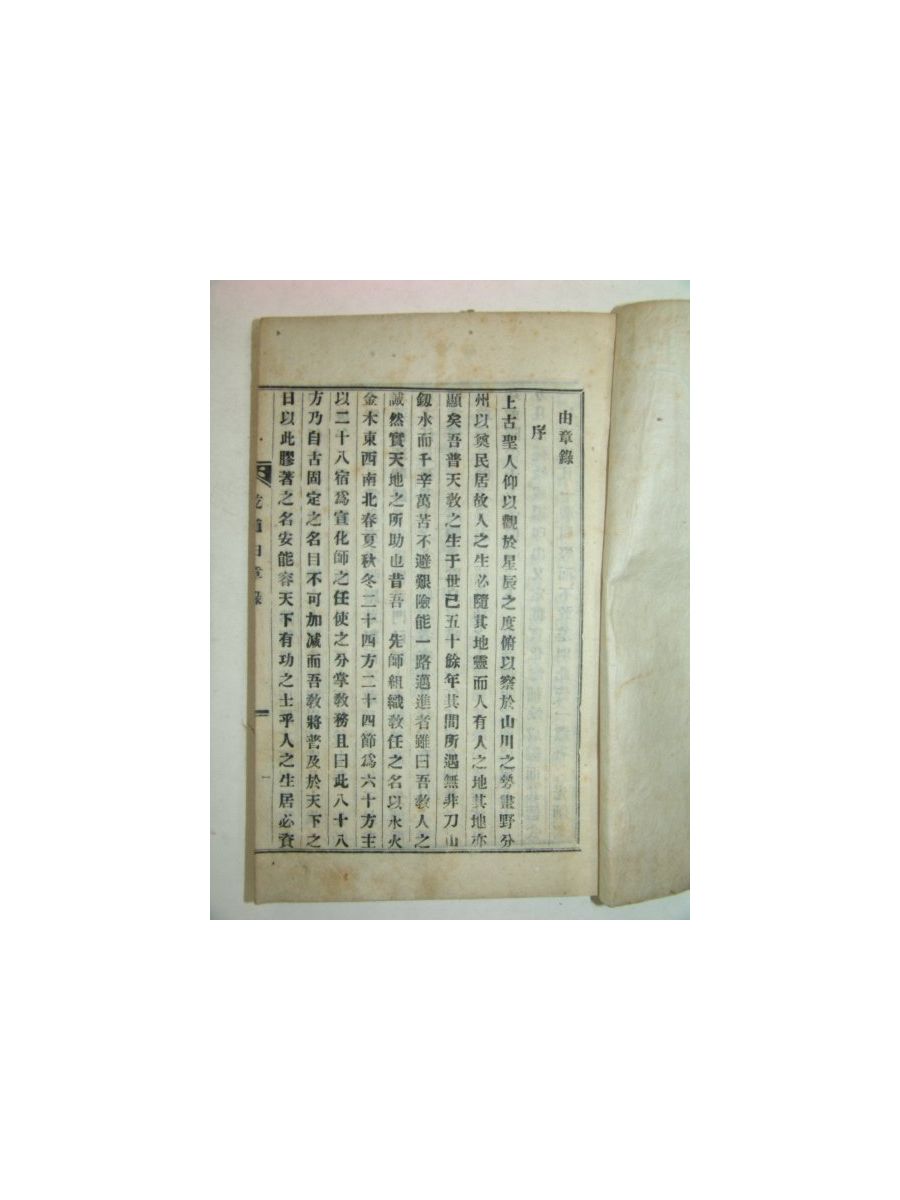 由章錄
序
上古聖人仰以觀於星辰之度俯以察於山川之勢畫野分
州以奠民居故人之生必隨其地靈而人有人之地其地亦
顯矣吾普天敎之生于世已五十餘年其間所遇無非刀山
釼水而千辛萬苦不避艱險能一路邁進者雖曰吾敎人之
誠然實天地之所助也昔吾 先師組織敎任之名以水火
金木東西南北春夏秋冬二十四方二十四節爲六十方主
以二十八宿爲宣化師之任使之分掌敎務且曰此八十八
方乃自古固定之名曰不可加減而吾敎將普及於天下之
日以此膠著之名安能容天下有功之士乎人之生居必資
乾道由章錄
一